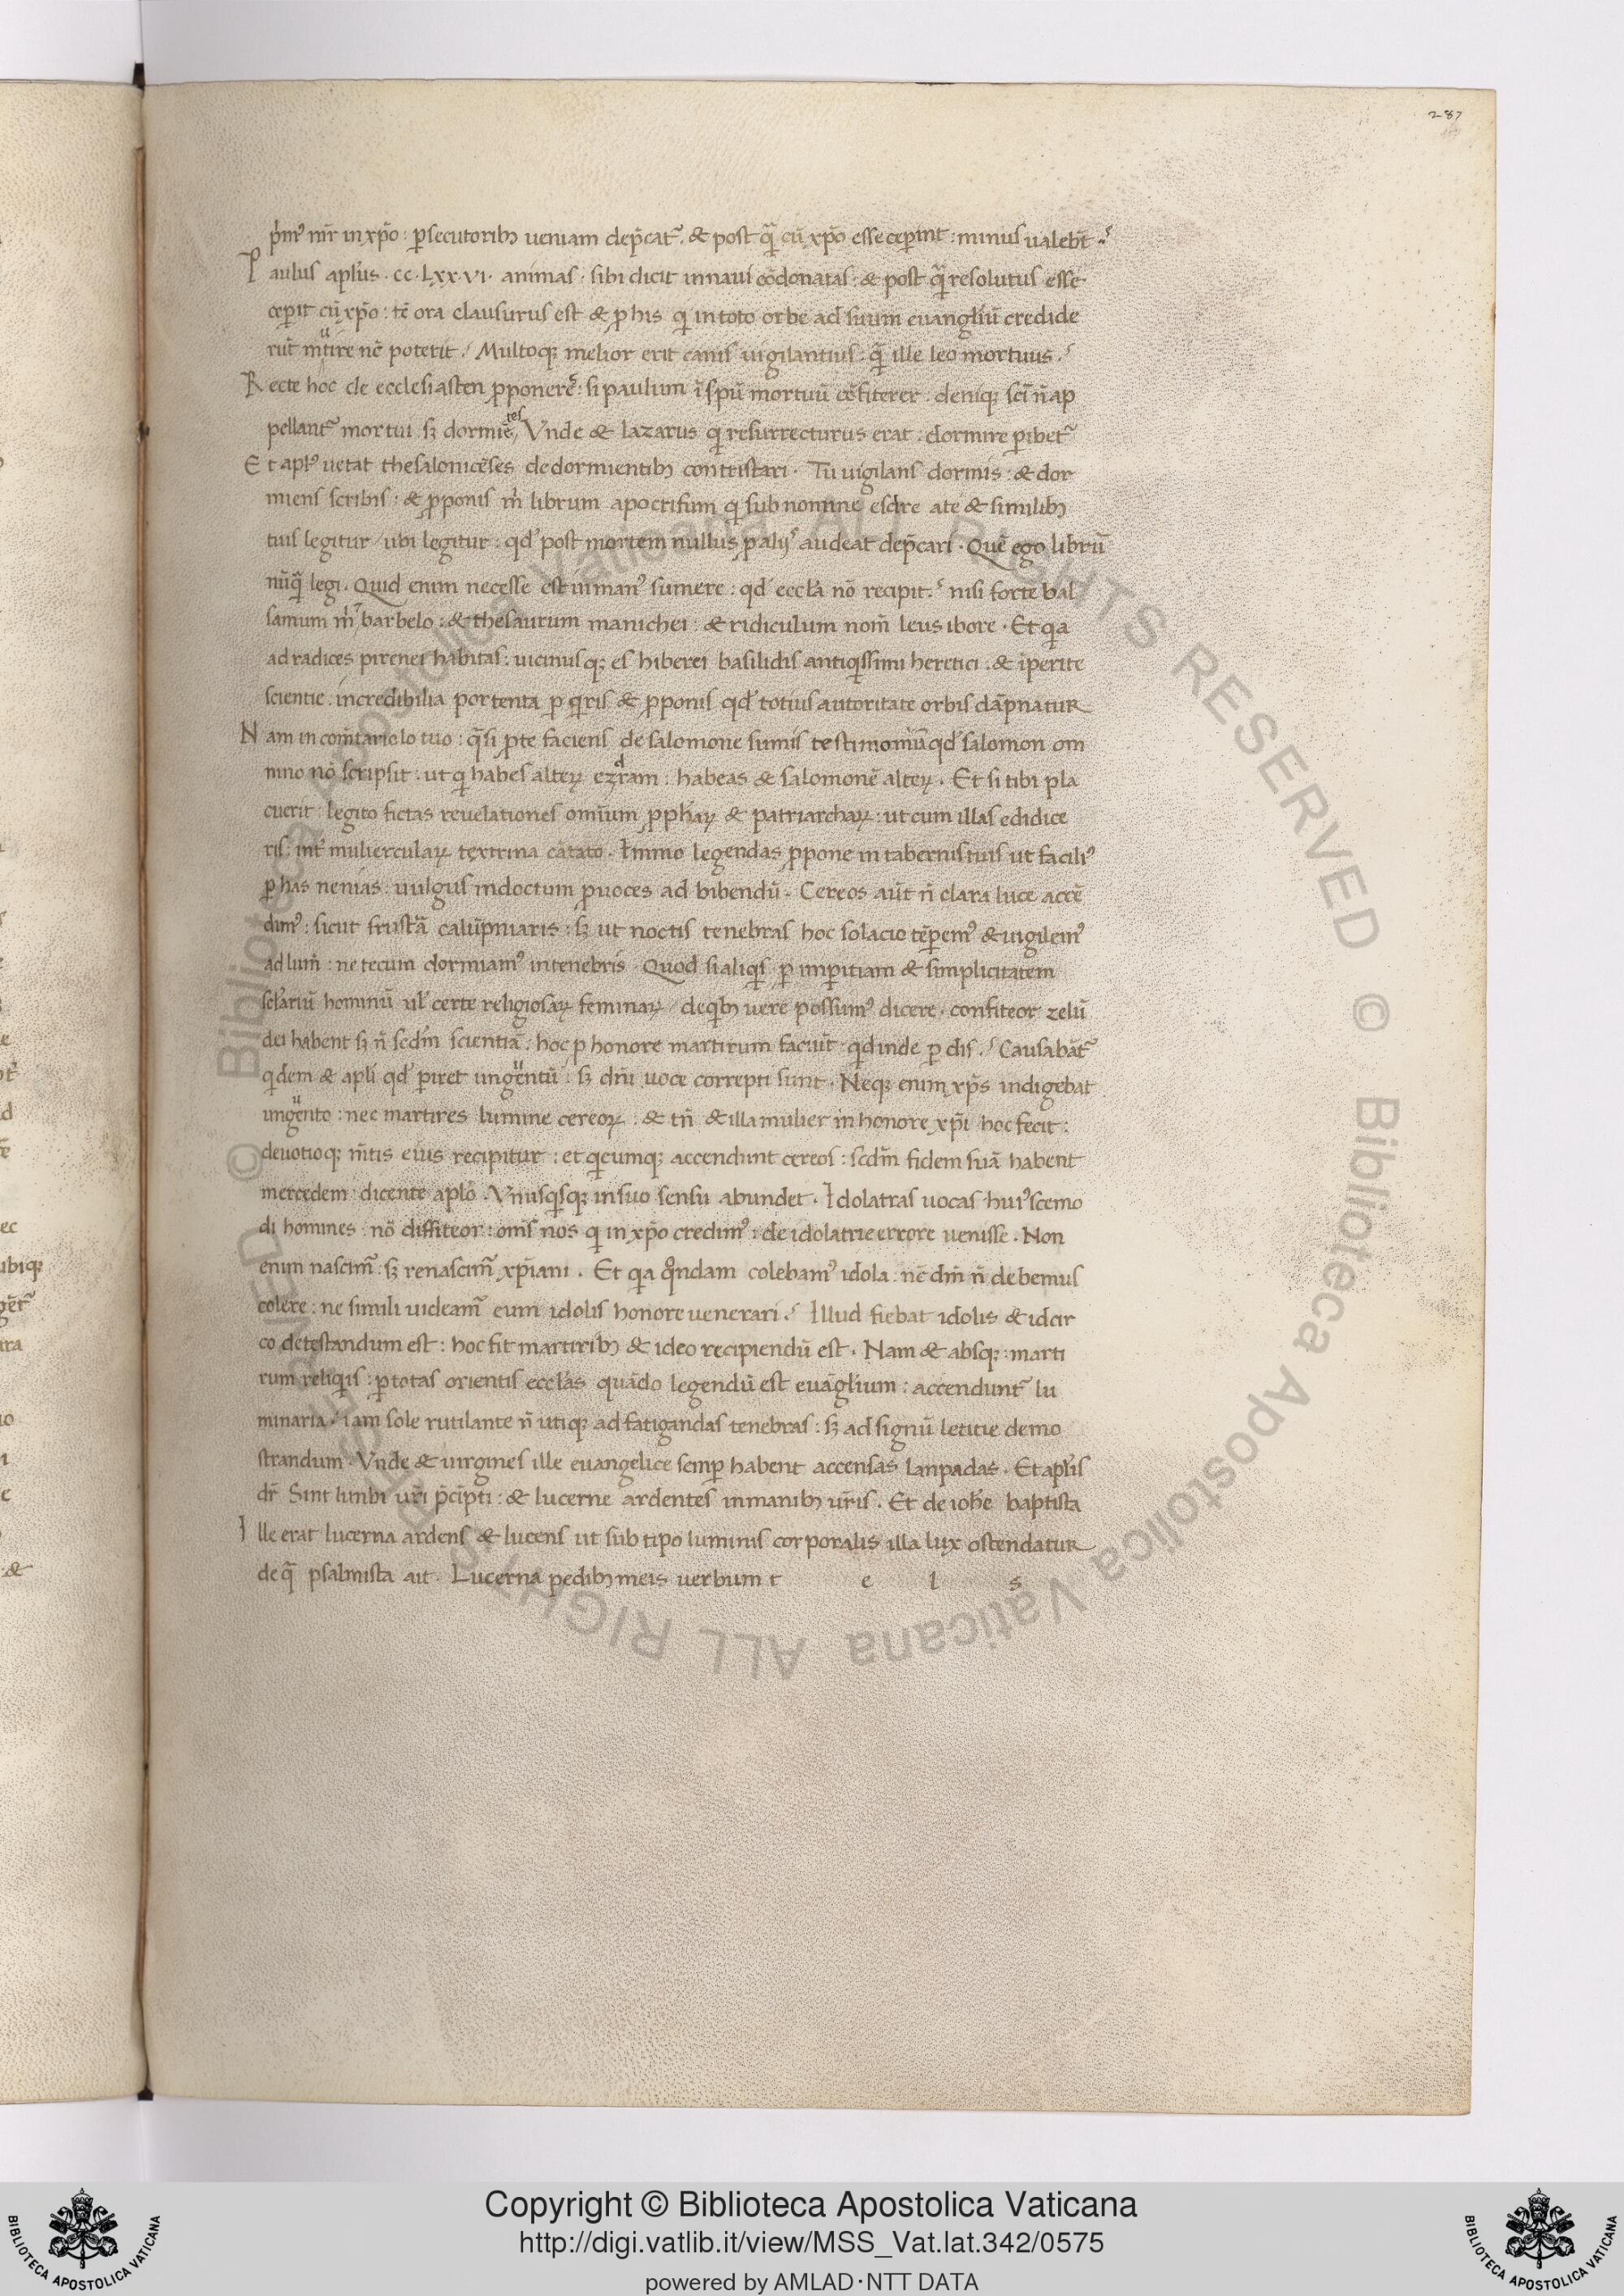 287
p̄mꝰ mr̄ in xp̄o : ꝑsecutoribꝫ ueniam dep̄cat᷑ . & post qͣ̄ cū xp̄o esse ceꝑint : minus ualebt̄ .ˢ
Paulus apl̄us . cc . Lxx . vi . animas . sibi dicit in naui cōdonatas : & post qͣ̄ resolutus esse
ceꝑit cū xp̄o : tē ora clausurus est & ꝓ his qͥ in toto orbe ad suum euangl̄iū credide
rūt mutire nō poterit .ˢ Multoqꝫ melior erit canis uigilantius : qͣ̄ ille leo mortuus .ˢ
Recte hoc de ecclesiasten ꝓponerē : si paulum ī sp̄u mortuū cōfiterer . deniqꝫ sc̄i n̄ ap
pellant᷑ mortui : sꝫ dormiētes / Vnde & lazarus qͥ resurrecturus erat : dormire ꝑibet᷑
Et apl̄ꝰ uetat thesalonicēses de dormientibꝫ contristari . Tu uigilans dormis : & dor
miens scribis : & ꝓponis m̄ librum apocrifum qͥ sub nomine esdre a te & similibꝫ
tuis legitur / ubi legitur : qd̄ post mortem nullus ꝓ alijˢ audeat dep̄cari . Quē ego librū
nūqͣ̄ legi . Quid enim necesse est in manꝰ sumere : qd̄ eccl̄a nō recipit .ˢ nisi forte bal
samum m̄ barbelo : & thesaurum manichei : & ridiculum nom̄ leusibore . Et qͥa
ad radices pirenei habitas : uicinusqꝫ es hiberei basilidis antiqͥssimi heretici : & īperite
scientie : incredibilia portenta ꝓ qͥris & ꝓponis qd̄ totius autoritate orbis dāpnatur
Nam in com̄tariolo tuo : qͣ̄si ꝓ te faciens de salomone sumis testimoniū qd̄ salomon om
nino nō scripsit : ut qͥ habes alteꝝ ezdram : habeas & salomonē alteꝝ . Et si tibi pla
cuerit : legito fictas reuelationes omīum ꝓph̄aꝝ & patriarchaꝝ : ut cum illas edidice
ris : int̄ muliercularꝝ textrina cātato . Immo legendas ꝓpone in tabernis tuis ut faciliꝰ
ꝑ has nenias : uulgus indoctum ꝓuoces ad bibendū . Cereos aūt n̄ clara luce accē
dimꝰ : sicut frustͣ̄ calūpniaris : sꝫ ut noctis tenebras hoc solacio tēꝑemꝰ & uigilemꝰ
ad lum̄ : ne tecum dormiamꝰ in tenebris . Quod si aliqͥs ꝑ imꝑitiam & simplicitatem
sclāriū hominū ul̄ certe religiosaꝝ feminaꝝ / de qͥbꝫ uere possumꝰ dicere . confiteor zelū
dei habent sꝫ n̄ scd̄m scientiā : hoc ꝓ honore martirum faciūt : qͥd inde ꝑdis .ˢ Causabāt᷑
qͥdem & apl̄i qd̄ ꝑiret ungentū : sꝫ dn̄i uoce correpti sunt . Neqꝫ enim xp̄s indigebat
unguento : nec martires lumine cereoꝝ : & tn̄ & illa mulier in honore xp̄i hoc fecit :
deuotioqꝫ m̄tis eius recipitur : et qͥcumqꝫ accendunt cereos : scd̄m fidem suā habent
mercedem dicente aplō . Vnusqͥsqꝫ in suo sensu abundet . Idolatras uocas huiꝰscemo
di homines : nō diffiteor : omīs nos qͥ in xp̄o credimꝰ : de idolatrie errore uenisse . Non
enim nascim᷑ : sꝫ renascim᷑ xp̄iani . Et qͥa qͦndam colebamꝰ idola : nc̄ dm̄ n̄ debemus
colere : ne simili uideam᷑ eum idolis honore uenerari .ˢ Illud fiebat idolis & idcir
co detestandum est : hoc fit martiribꝫ & ideo recipiendū est . Nam & absqꝫ : marti
rum reliqͥis : ꝑ totas orientis eccl̄as quādo legendū est euāgl̄ium : accendunt᷑ lu
minaria / iam sole rutilante n̄ utiqꝫ ad fatigandas tenebras : sꝫ ad signū letitie demo
strandum . Vnde & uirgines ille euangelice semꝑ habent accensas lanpadas . Et apl̄is
dr̄ Sint lumbi ur̄i p̄cīpti : & lucerne ardentes in manibꝫ ur̄is . Et de ioh̄e baptista
Ille erat lucerna ardens & lucens ut sub tipo luminis corporalis illa lux ostendatur
de qͣ psalmista ait . Lucerna pedibꝫ meis uerbum t e l s
Copyright © Biblioteca Apostolica Vaticana
http://digi.vatlib.it/view/MSS_Vat.lat.342/0575
powered by AMLAD·NTT DATA